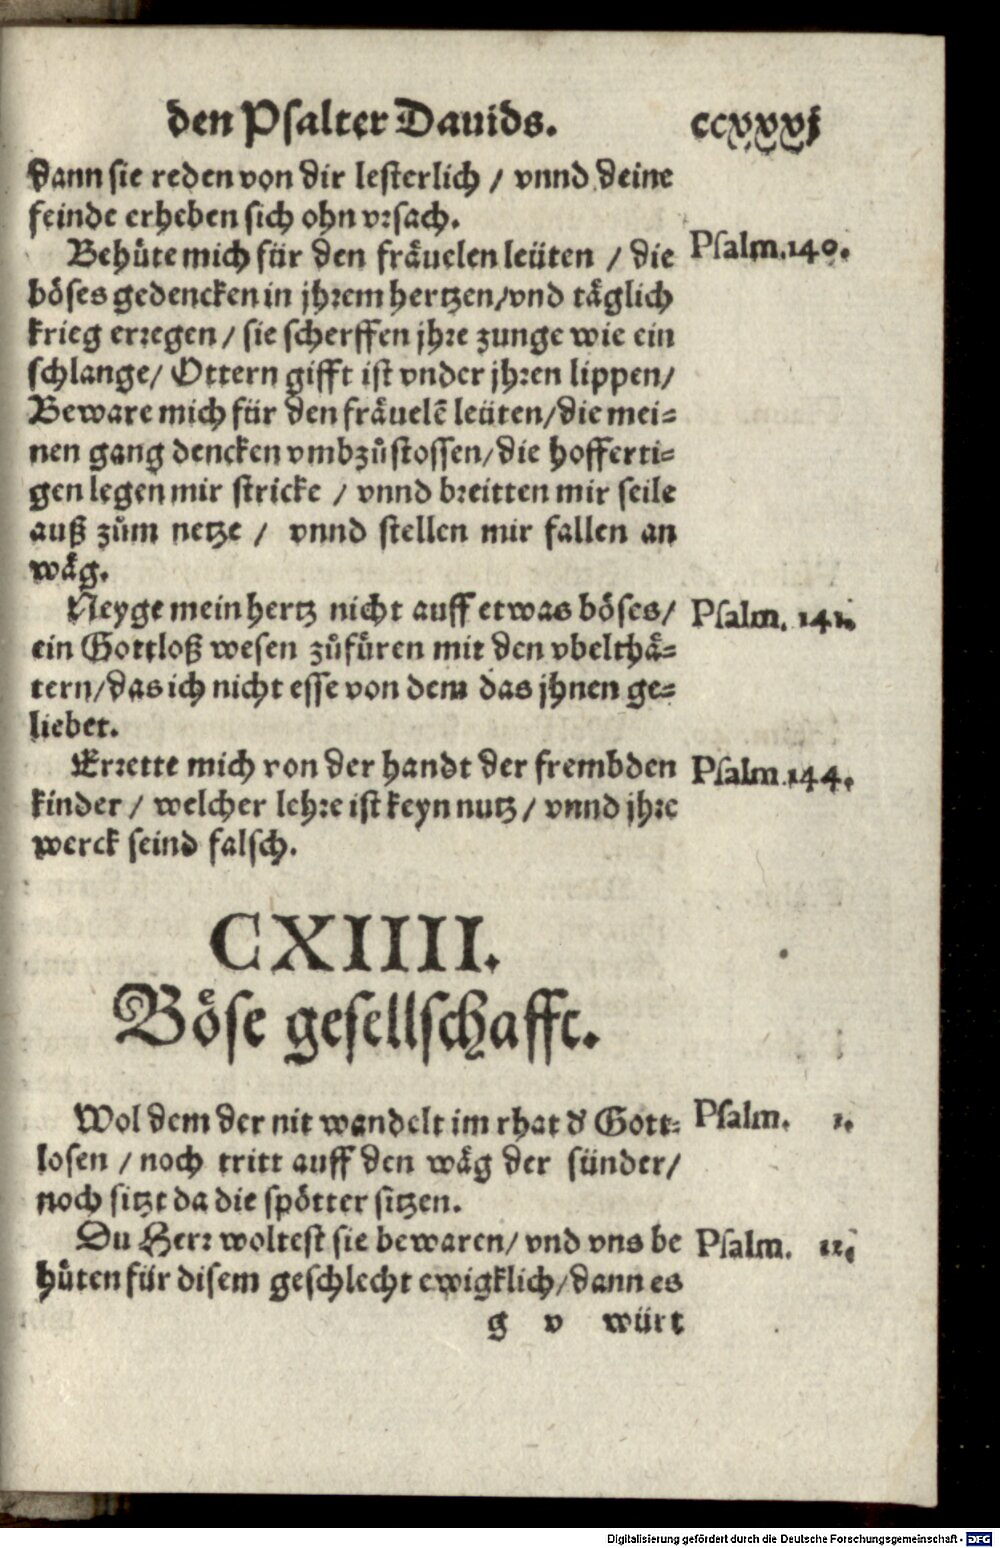 den Psalter Dauids. ccxxxj
dann sie reden von dir lesterlich / vnnd deine
feinde erheben sich ohn vrsach.
Behůte mich für den fräuelen leüten / die Psalm. 140.
böses gedencken in jhrem hertzen/vnd täglich
krieg erregen / sie scherffen jhre zunge wie ein
schlange/ Ottern gifft ist vnder jhren lippen/
Beware mich für den fräuelē leüten/die mei=
nen gang dencken vmbzůstossen/die hofferti=
gen legen mir stricke / vnnd breitten mir seile
auß zům netze / vnnd stellen mir fallen an
wäg.
Neyge mein hertz nicht auff etwas böses/ Psalm. 141.
ein Gottloß wesen zůfüren mit den vbelthä=
tern/das ich nicht esse von dem das jhnen ge=
liebet.
Errette mich von der handt der frembden Psalm. 144.
kinder / welcher lehre ist keyn nutz / vnnd jhre
werck seind falsch.
CXIIII.
Böse gesellschafft.
Wol dem der nit wandelt im rhat d' Gott= Psalm. 1.
losen / noch tritt auff den wäg der sünder/
noch sitzt da die spötter sitzen.
Du Herr woltest sie bewaren/ vnd vns be Psalm. 12.
hůten für disem geschlecht ewigklich/dann es
g v würt
Digitalisierung gefördert durch die Deutsche Forschungsgemeinschaft - DFG